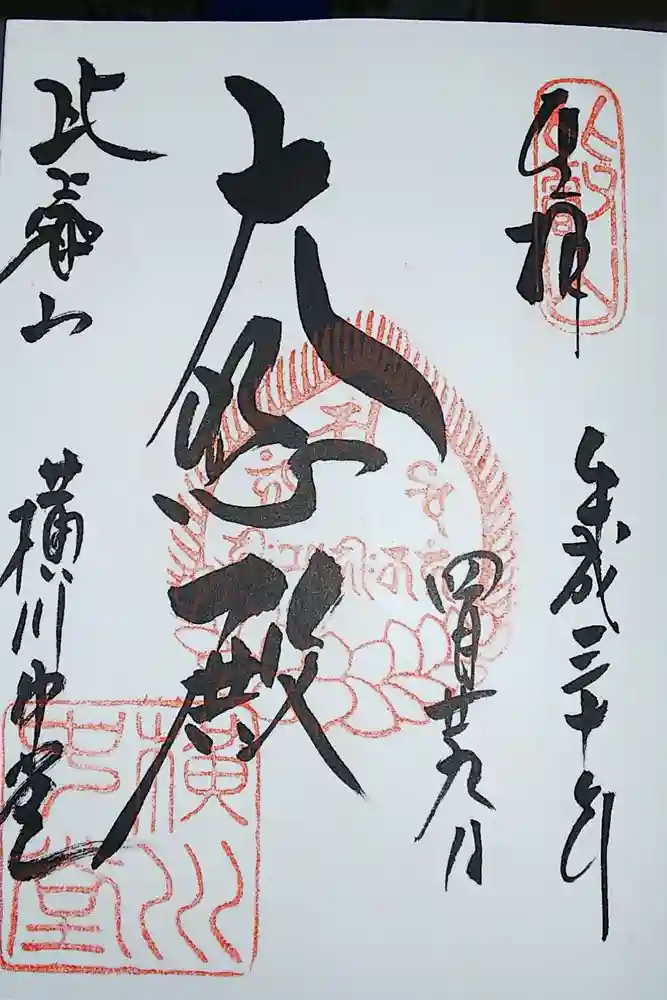 奉拝
平成三十年
四月廿九日
大悲殿
比叡山
横川中堂
横川中堂